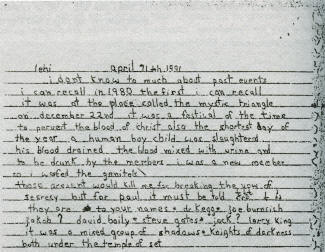 lehi april 21th, 1991
i dont know to much about past events
i can recall in 1980 the first i can recall
it was at the place called the mystic triangle
on december 22nd it was a festival of the time
to pervert the blood of christ also the shortest day of
the year a human boy child was slaughterd
his blood drained the blood mixed with urine and
to be drunk by the members i was a new member
so i the
those present would kill me for breaking the vow of
secresy but for paul it must be told
they are to your names joe burneish
jakob ? david baily steve gates jack ? larry king
it was a mixed group of shadows knights of darkness
both under the temple of set